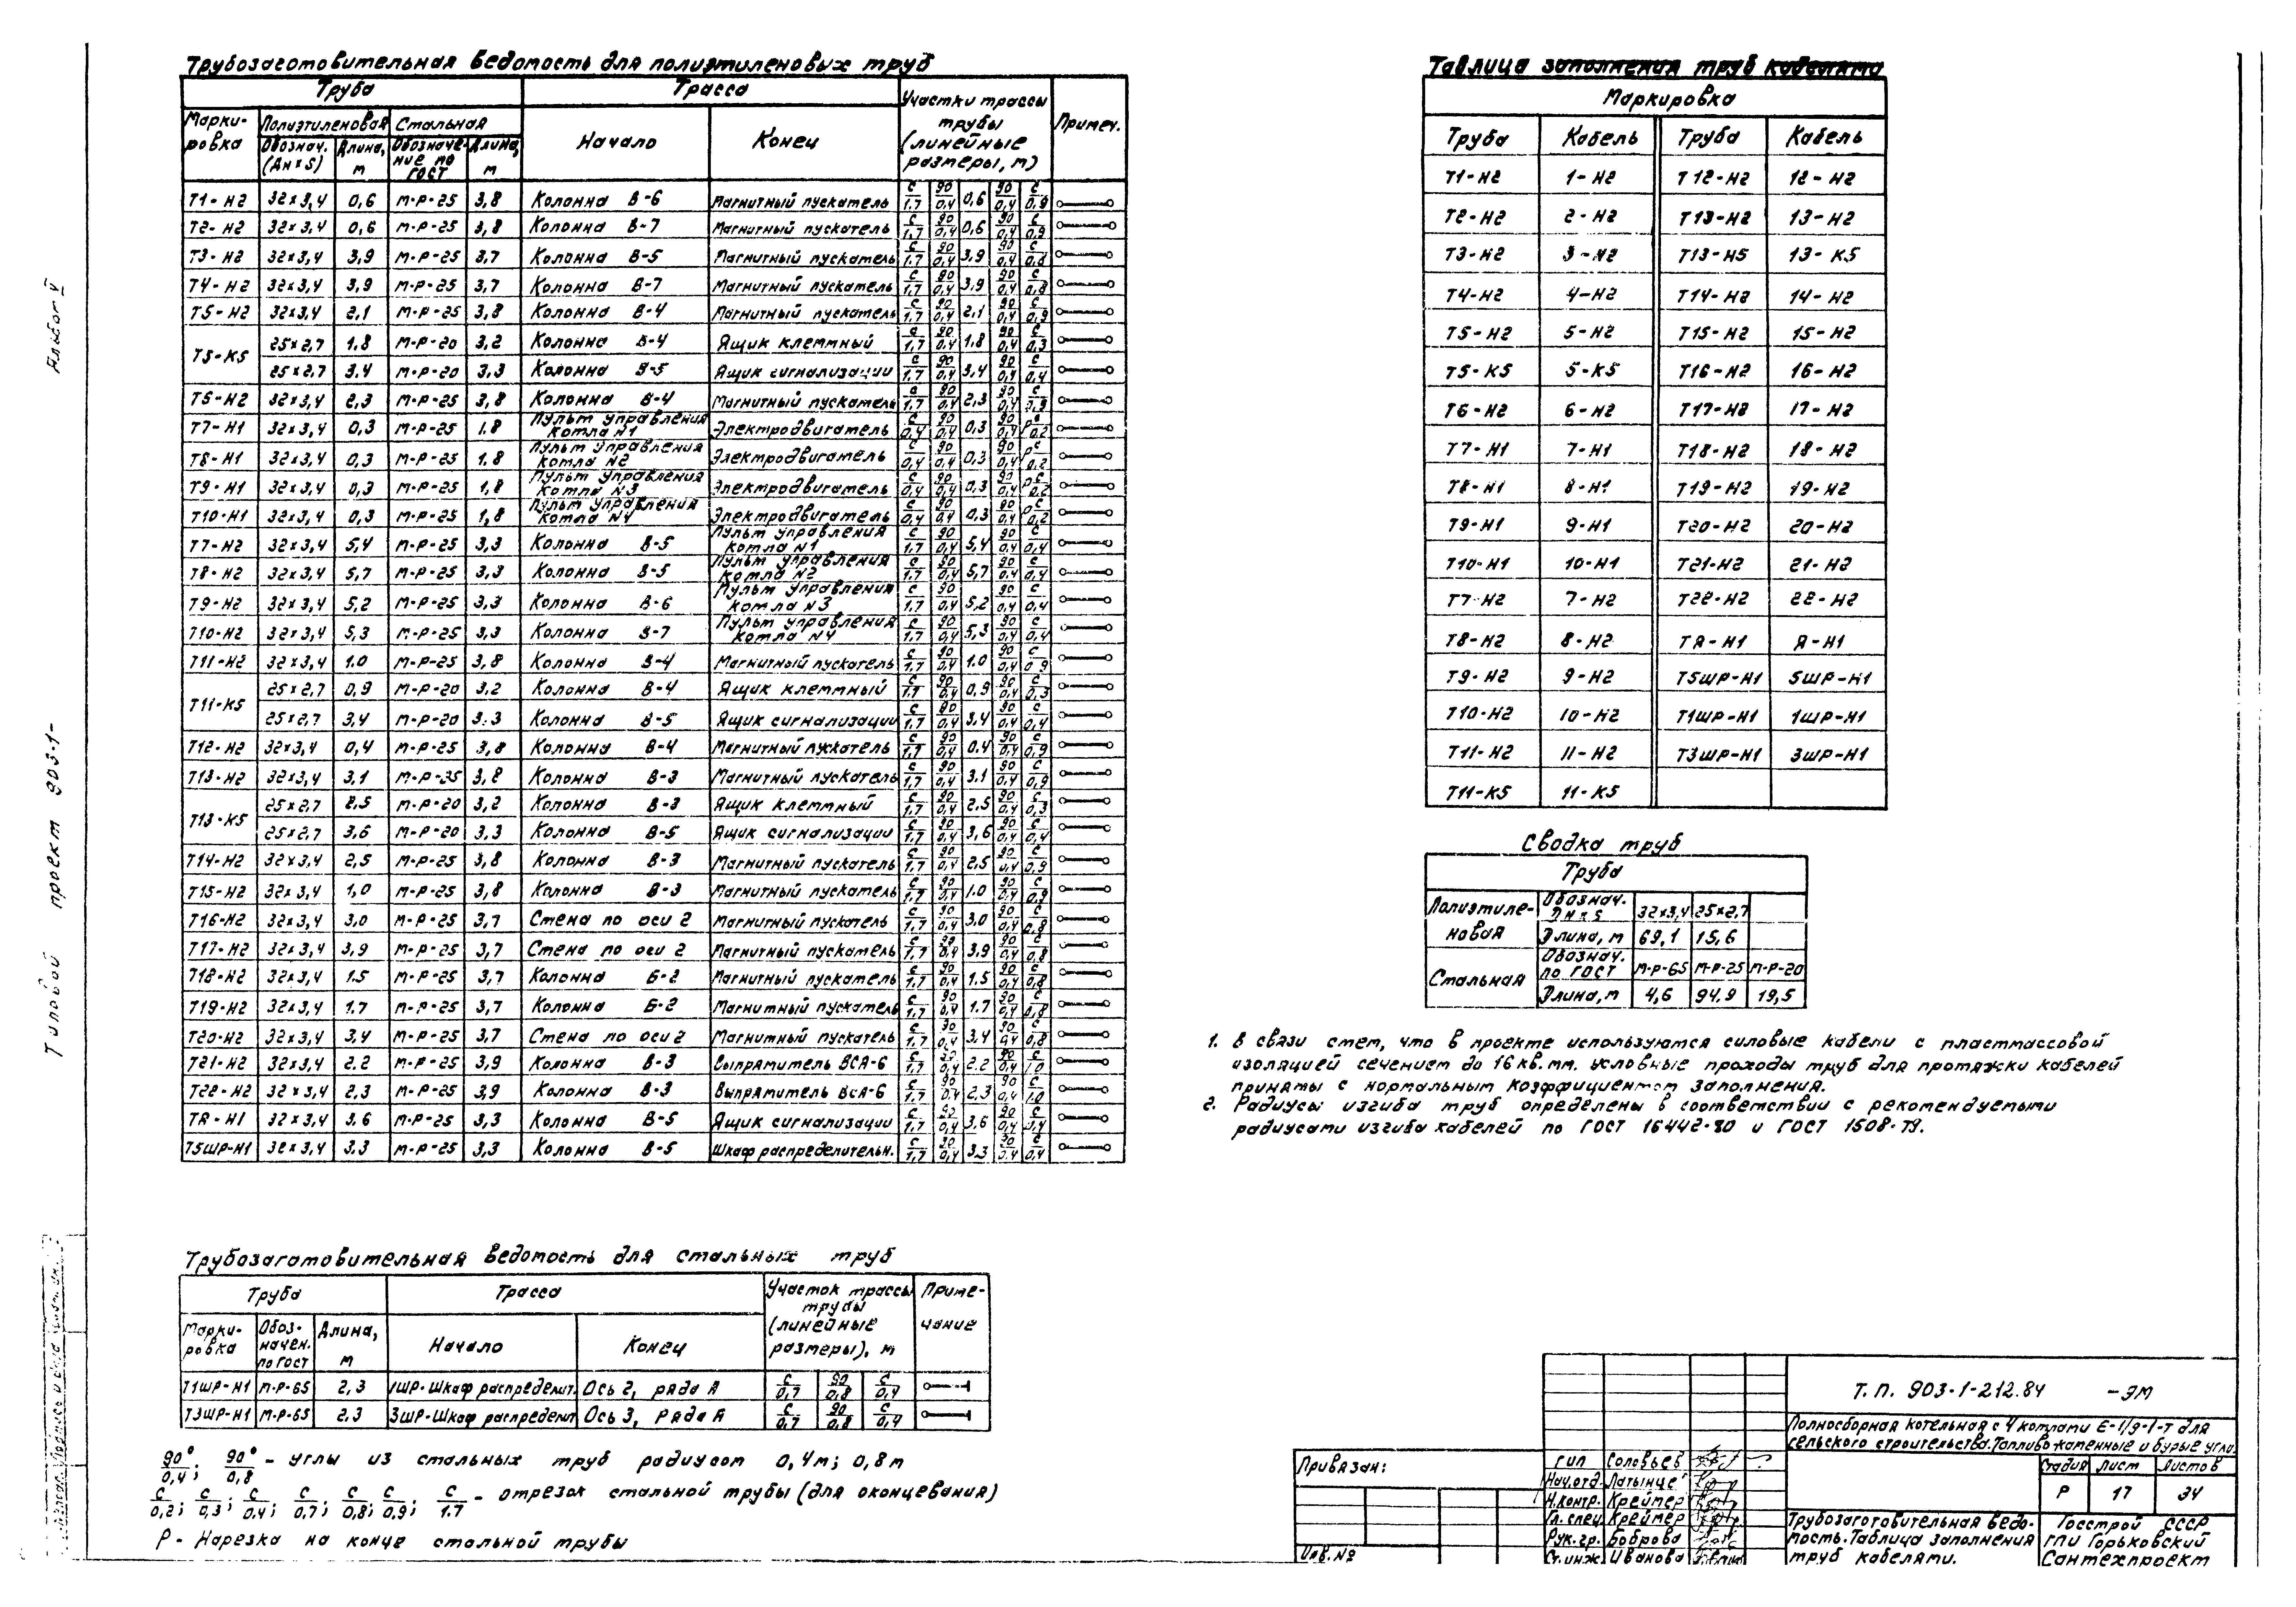 Альбом V
Типовой проект 903-1-
Трубозаготовительная ведомость для полиэтиленовых труб
Труба | Трасса | Участки трассы трубы (линейные размеры, м) | Примеч.
Марки-ровка | Полиэтиленовая | Стальная | Начало | Конец
Обознач. (Дн×S) | Длина, м | Обозначе-ние по ГОСТ | Длина, м
Т1-Н2 | 32×3,4 | 0,6 | М-Р-25 | 3,8 | Колонна В-6 | Магнитный пускатель | С/1,7 | 90/0,4 | 0,6 | 90/0,4 | С/0,9
Т2-Н2 | 32×3,4 | 0,6 | М-Р-25 | 3,8 | Колонна В-7 | Магнитный пускатель | С/1,7 | 90/0,4 | 0,6 | 90/0,4 | С/0,9
Т3-Н2 | 32×3,4 | 3,9 | М-Р-25 | 3,7 | Колонна В-5 | Магнитный пускатель | С/1,7 | 90/0,4 | 3,9 | 90/0,4 | С/0,8
Т4-Н2 | 32×3,4 | 3,9 | М-Р-25 | 3,7 | Колонна В-7 | Магнитный пускатель | С/1,7 | 90/0,4 | 3,9 | 90/0,4 | С/0,8
Т5-Н2 | 32×3,4 | 2,1 | М-Р-25 | 3,8 | Колонна В-4 | Магнитный пускатель | С/1,7 | 90/0,4 | 2,1 | 90/0,4 | С/0,9
Т5-К5 | 25×2,7 | 1,8 | М-Р-20 | 3,2 | Колонна В-4 | Ящик клеммный | С/1,7 | 90/0,4 | 1,8 | 90/0,4 | С/0,3
25×2,7 | 3,4 | М-Р-20 | 3,3 | Колонна В-5 | Ящик сигнализации | С/1,7 | 90/0,4 | 3,4 | 90/0,4 | С/0,4
Т6-Н2 | 32×3,4 | 2,3 | М-Р-25 | 3,8 | Колонна В-4 | Магнитный пускатель | С/1,7 | 90/0,4 | 2,3 | 90/0,4 | С/0,9
Т7-Н1 | 32×3,4 | 0,3 | М-Р-25 | 1,8 | Пульт управления котла N1 | Электродвигатель | С/0,4 | 90/0,4 | 0,3 | 90/0,4 | Р С/0,2
Т8-Н1 | 32×3,4 | 0,3 | М-Р-25 | 1,8 | Пульт управления котла N2 | Электродвигатель | С/0,4 | 90/0,4 | 0,3 | 90/0,4 | Р С/0,2
Т9-Н1 | 32×3,4 | 0,3 | М-Р-25 | 1,8 | Пульт управления котла N3 | Электродвигатель | С/0,4 | 90/0,4 | 0,3 | 90/0,4 | Р С/0,2
Т10-Н1 | 32×3,4 | 0,3 | М-Р-25 | 1,8 | Пульт управления котла N4 | Электродвигатель | С/0,4 | 90/0,4 | 0,3 | 90/0,4 | Р С/0,2
Т7-Н2 | 32×3,4 | 5,4 | М-Р-25 | 3,3 | Колонна В-5 | Пульт управления котла N1 | С/1,7 | 90/0,4 | 5,4 | 90/0,4 | С/0,4
Т8-Н2 | 32×3,4 | 5,7 | М-Р-25 | 3,3 | Колонна В-5 | Пульт управления котла N2 | С/1,7 | 90/0,4 | 5,7 | 90/0,4 | С/0,4
Т9-Н2 | 32×3,4 | 5,2 | М-Р-25 | 3,3 | Колонна В-6 | Пульт управления котла N3 | С/1,7 | 90/0,4 | 5,2 | 90/0,4 | С/0,4
Т10-Н2 | 32×3,4 | 5,3 | М-Р-25 | 3,3 | Колонна В-7 | Пульт управления котла N4 | С/1,7 | 90/0,4 | 5,3 | 90/0,4 | С/0,4
Т11-Н2 | 32×3,4 | 1,0 | М-Р-25 | 3,8 | Колонна В-4 | Магнитный пускатель | С/1,7 | 90/0,4 | 1,0 | 90/0,4 | С/0,9
Т11-К5 | 25×2,7 | 0,9 | М-Р-20 | 3,2 | Колонна В-4 | Ящик клеммный | С/1,7 | 90/0,4 | 0,9 | 90/0,4 | С/0,3
25×2,7 | 3,4 | М-Р-20 | 3,3 | Колонна В-5 | Ящик сигнализации | С/1,7 | 90/0,4 | 3,4 | 90/0,4 | С/0,4
Т12-Н2 | 32×3,4 | 0,4 | М-Р-25 | 3,8 | Колонна В-4 | Магнитный пускатель | С/1,7 | 90/0,4 | 0,4 | 90/0,4 | С/0,9
Т13-Н2 | 32×3,4 | 3,1 | М-Р-25 | 3,8 | Колонна В-3 | Магнитный пускатель | С/1,7 | 90/0,4 | 3,1 | 90/0,4 | С/0,9
Т13-К5 | 25×2,7 | 2,5 | М-Р-20 | 3,2 | Колонна В-3 | Ящик клеммный | С/1,7 | 90/0,4 | 2,5 | 90/0,4 | С/0,3
25×2,7 | 3,6 | М-Р-20 | 3,3 | Колонна В-5 | Ящик сигнализации | С/1,7 | 90/0,4 | 3,6 | 90/0,4 | С/0,4
Т14-Н2 | 32×3,4 | 2,5 | М-Р-25 | 3,8 | Колонна В-3 | Магнитный пускатель | С/1,7 | 90/0,4 | 2,5 | 90/0,4 | С/0,9
Т15-Н2 | 32×3,4 | 1,0 | М-Р-25 | 3,8 | Колонна В-3 | Магнитный пускатель | С/1,7 | 90/0,4 | 1,0 | 90/0,4 | С/0,9
Т16-Н2 | 32×3,4 | 3,0 | М-Р-25 | 3,7 | Стена по оси 2 | Магнитный пускатель | С/1,7 | 90/0,4 | 3,0 | 90/0,4 | С/0,8
Т17-Н2 | 32×3,4 | 3,9 | М-Р-25 | 3,7 | Стена по оси 2 | Магнитный пускатель | С/1,7 | 90/0,4 | 3,9 | 90/0,4 | С/0,8
Т18-Н2 | 32×3,4 | 1.5 | М-Р-25 | 3,7 | Колонна Б-2 | Магнитный пускатель | С/1,7 | 90/0,4 | 1.5 | 90/0,4 | С/0,8
Т19-Н2 | 32×3,4 | 1.7 | М-Р-25 | 3,7 | Колонна Б-2 | Магнитный пускатель | С/1,7 | 90/0,4 | 1.7 | 90/0,4 | С/0,8
Т20-Н2 | 32×3,4 | 3,4 | М-Р-25 | 3,7 | Стена по оси 2 | Магнитный пускатель | С/1,7 | 90/0,4 | 3,4 | 90/0,4 | С/0,8
Т21-Н2 | 32×3,4 | 2.2 | М-Р-25 | 3,9 | Колонна В-3 | Выпрямитель ВСА-6 | С/1,7 | 90/0,4 | 2.2 | 90/0,4 | С/1,0
Т22-Н2 | 32×3,4 | 2.3 | М-Р-25 | 3,9 | Колонна В-3 | Выпрямитель ВСА-6 | С/1,7 | 90/0,4 | 2,3 | 90/0,4 | С/1,0
ТА-Н1 | 32×3,4 | 3.6 | М-Р-25 | 3,3 | Колонна В-5 | Ящик сигнализации | С/1,7 | 90/0,4 | 3,6 | 90/0,4 | С/0,4
Т5ШР-Н1 | 32×3,4 | 3.3 | М-Р-25 | 3,3 | Колонна В-5 | Шкаф распределительн. | С/1,7 | 90/0,4 | 3,3 | 90/0,4 | С/0,4
Трубозаготовительная ведомость для стальных труб
Труба | Трасса | Участок трассы трубы (линейные размеры), м | Приме-чание
Марки-ровка | Обоз-начен. по ГОСТ | Длина, м | Начало | Конец
Т1ШР-Н1 | М-Р-65 | 2,3 | 1ШР-Шкаф распределит. | Ось 2, ряда А | С/0,7 | 90/0,8 | С/0,4
Т3ШР-Н1 | М-Р-65 | 2.3 | 3ШР-Шкаф распределит | Ось 3, ряда А | С/0,7 | 90/0,8 | С/0,4
90°/0,4; 90°/0,8 - углы из стальных труб радиусом 0,4м; 0,8м
С/0,2; С/0,3; С/0,4; С/0,7; С/0,8; С/0,9; С/1.7 - отрезок стальной трубы (для оконцевания)
Р - Нарезка на конце стальной трубы
Таблица заполнения труб кабелями
Маркировка
Труба | Кабель | Труба | Кабель
Т1-Н2 | 1-Н2 | Т12-Н2 | 12-Н2
Т2-Н2 | 2-Н2 | Т13-Н2 | 13-Н2
Т3-Н2 | 3-Н2 | Т13-Н5 | 13-К5
Т4-Н2 | 4-Н2 | Т14-Н2 | 14-Н2
Т5-Н2 | 5-Н2 | Т15-Н2 | 15-Н2
Т5-К5 | 5-К5 | Т16-Н2 | 16-Н2
Т6-Н2 | 6-Н2 | Т17-Н2 | 17-Н2
Т7-Н1 | 7-Н1 | Т18-Н2 | 18-Н2
Т8-Н1 | 8-Н1 | Т19-Н2 | 19-Н2
Т9-Н1 | 9-Н1 | Т20-Н2 | 20-Н2
Т10-Н1 | 10-Н1 | Т21-Н2 | 21-Н2
Т7-Н2 | 7-Н2 | Т22-Н2 | 22-Н2
Т8-Н2 | 8-Н2 | ТА-Н1 | А-Н1
Т9-Н2 | 9-Н2 | Т5ШР-Н1 | 5ШР-Н1
Т10-Н2 | 10-Н2 | Т1ШР-Н1 | 1ШР-Н1
Т11-Н2 | 11-Н2 | Т3ШР-Н1 | 3ШР-Н1
Т11-К5 | 11-К5
Сводка труб
Труба
Полиэтиле-новая | Обознач. Дн×S | 32×3,4 | 25×2,7
Длина, м | 69,1 | 15,6
Стальная | Обознач. по ГОСТ | М-Р-65 | М-Р-25 | М-Р-20
Длина, м | 4,6 | 94.9 | 19,5
1. В связи с тем, что в проекте используются силовые кабели с пластмассовой
изоляцией сечением до 16 кв.мм. условные проходы труб для протяжки кабелей
приняты с нормальным коэффициентом заполнения.
2. Радиусы изгиба труб определены в соответствии с рекомендуемыми
радиусами изгиба кабелей по ГОСТ 16442-80 и ГОСТ 1508-79.
Привязан:
Инв.№
ГИП Соловьев
Нач.отд. Латынцев
Н.контр. Крейтер
Гл.спец. Крейтер
Рук.гр. Боброва
Ст.инж. Иванова
Т. П. 903-1-212.84 -ЭМ
Полносборная котельная с 4 котлами Е-1/9-1-Т для
сельского строительства. Топливо-каменные и бурые угли.
Стадия | Лист | Листов
Р | 17 | 34
Трубозаготовительная ведо-
мость. Таблица заполнения
труб кабелями.
Госстрой СССР
ГПИ Горьковский
Сантехпроект